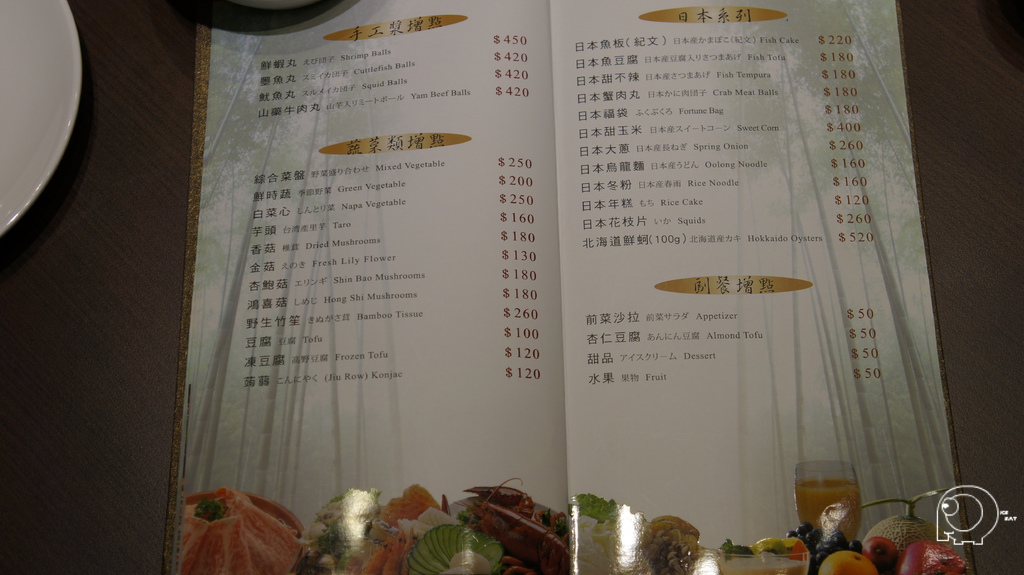 手工漿增點
鮮蝦丸 えび団子 Shrimp Balls $450
墨魚丸 スミイカ団子 Cuttlefish Balls $420
魷魚丸 スルメイカ団子 Squid Balls $420
山藥牛肉丸 山芋入りミートボール Yam Beef Balls $420
蔬菜類增點
綜合菜盤 野菜盛り合わせ Mixed Vegetable $250
鮮時蔬 季節野菜 Green Vegetable $200
白菜心 しんとり菜 Napa Vegetable $250
芋頭 台湾産里芋 Taro $160
香菇 椎茸 Dried Mushrooms $180
金菇 えのき Fresh Lily Flower $130
杏鮑菇 エリンギ Shin Bao Mushrooms $180
鴻喜菇 しめじ Hong Shi Mushrooms $180
野生竹笙 きぬがさ茸 Bamboo Tissue $260
豆腐 豆腐 Tofu $100
凍豆腐 高野豆腐 Frozen Tofu $120
蒟蒻 こんにやく (Jiu Row) Konjac $120
日本系列
日本魚板(紀文) 日本産かまぼこ(紀文) Fish Cake $220
日本魚豆腐 日本産豆腐入りさつまあげ Fish Tofu $180
日本甜不辣 日本産さつまあげ Fish Tempura $180
日本蟹肉丸 日本かに肉団子 Crab Meat Balls $180
日本福袋 ふくぶくろ Fortune Bag $180
日本甜玉米 日本産スイートコーン Sweet Corn $400
日本大蔥 日本産長ねぎ Spring Onion $260
日本烏龍麵 日本産うどん Oolong Noodle $160
日本冬粉 日本産春雨 Rice Noodle $160
日本年糕 もち Rice Cake $120
日本花枝片 いか Squids $260
北海道鮮蚵(100g) 北海道産カキ Hokkaido Oysters $520
副餐增點
前菜沙拉 前菜サラダ Appetizer $50
杏仁豆腐 あんにん豆腐 Almond Tofu $50
甜品 アイスクリーム Dessert $50
水果 果物 Fruit $50
ICE
EAT